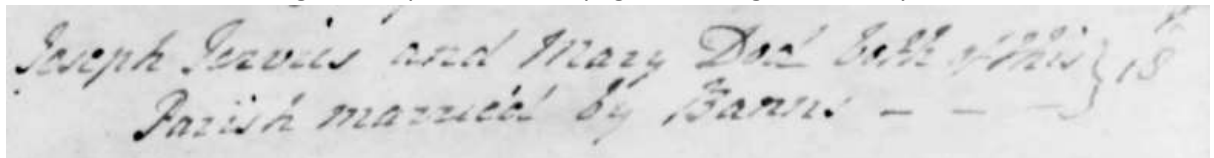 Joseph Jervis and Mary Dod both of this } 18
Parish married by Banns - - -